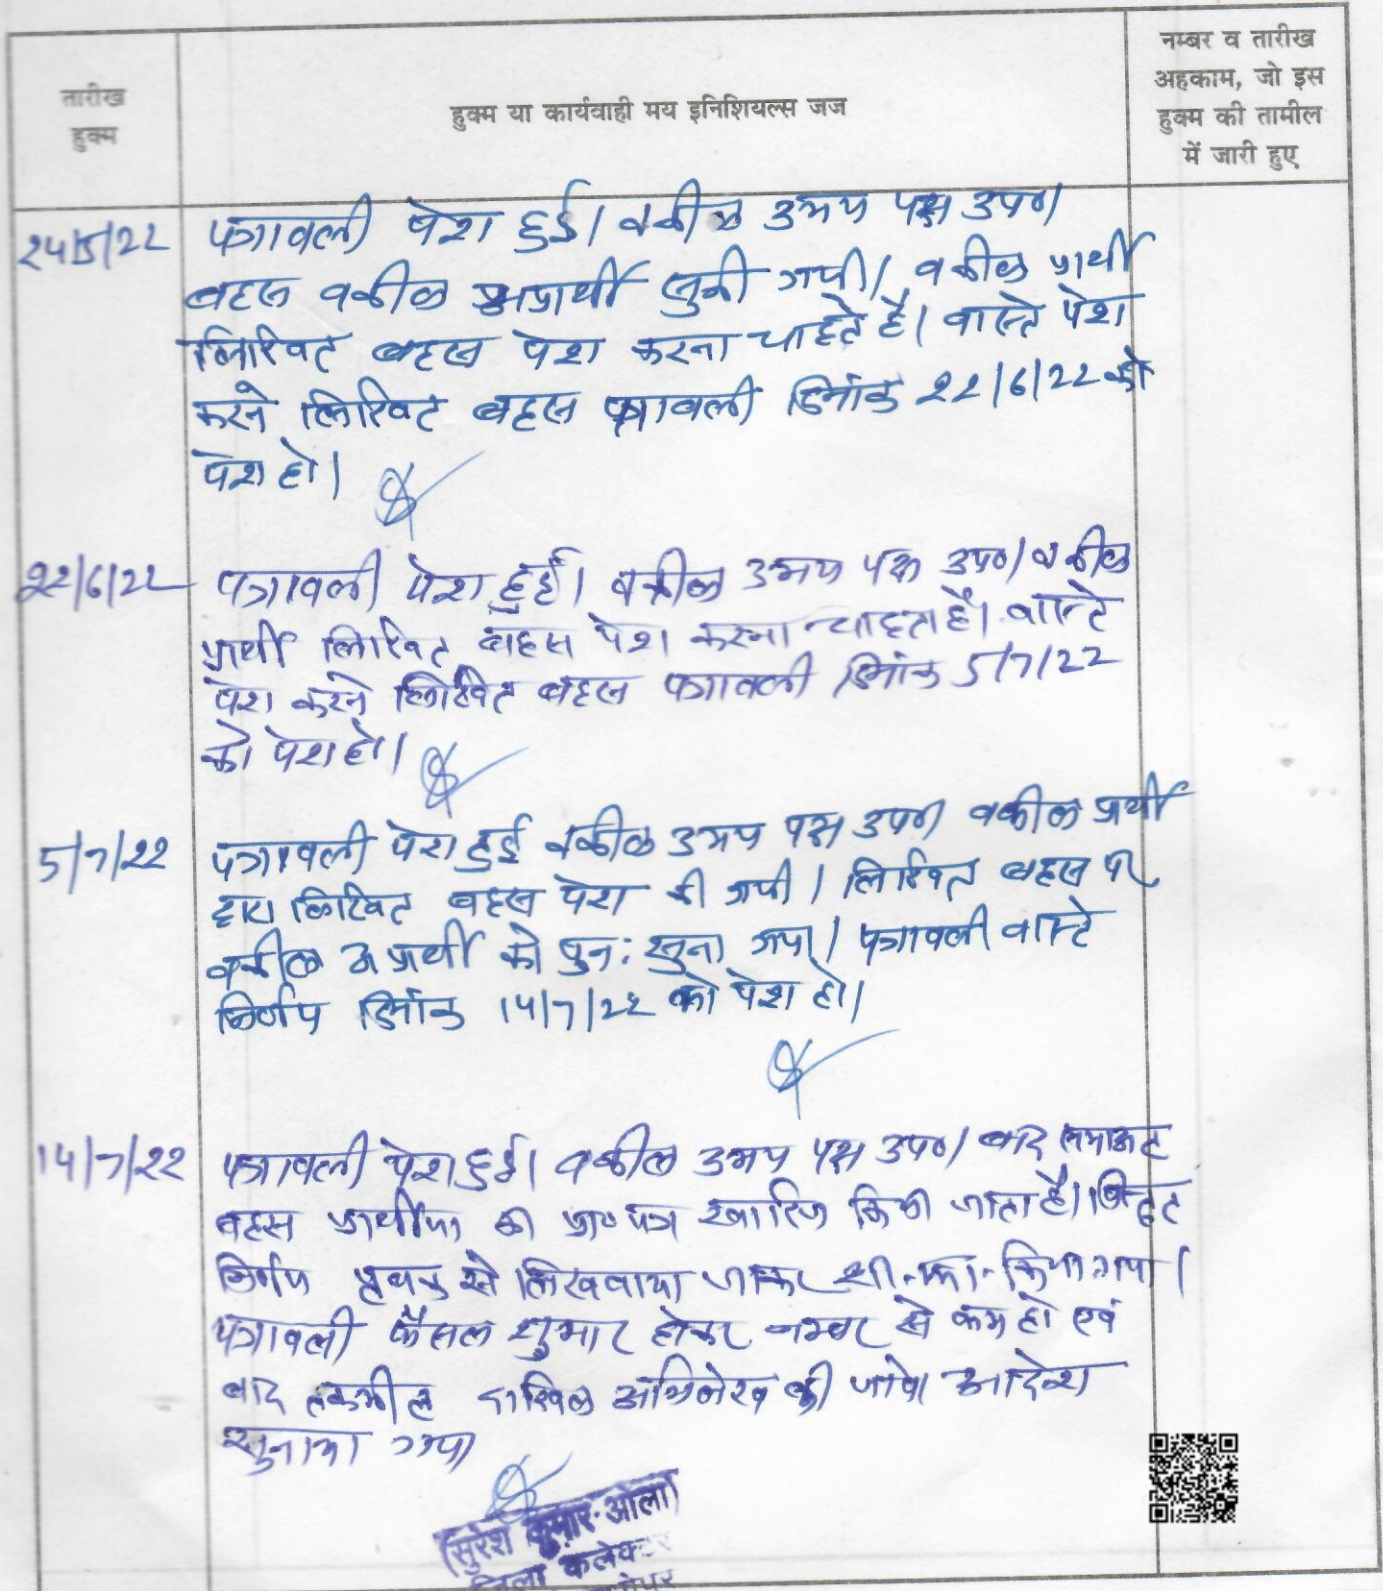 तारीख
हुक्म
हुक्म या कार्यवाही मय इनिशियल्स जज
नम्बर व तारीख
अहकाम, जो इस
हुक्म की तामील
में जारी हुए
24/5/22 पत्रावली पेश हुई। वकील उभय पक्ष उप०।
बहस वकील अप्रार्थी सुनी गयी। वकील प्रार्थी
लिखित बहस पेश करना चाहते है। वास्ते पेश
करने लिखित बहस पत्रावली दिनांक 22/6/22 को
पेश हो।
22/6/22 पत्रावली पेश हुई। वकील उभय पक्ष उप०। वकील
प्रार्थी लिखित बहस पेश करना चाहता है। वास्ते
पेश करने लिखित बहस पत्रावली दिनांक 5/7/22
को पेश हो।
5/7/22 पत्रावली पेश हुई वकील उभय पक्ष उप०। वकील प्रार्थी
द्वारा लिखित बहस पेश की गयी। लिखित बहस पर
वकील अप्रार्थी को पुन: सुना गया। पत्रावली वास्ते
निर्णय दिनांक 14/7/22 को पेश हो।
14/7/22 पत्रावली पेश हुई। वकील उभय पक्ष उप०। बाद समाअत
बहस प्रार्थीया का प्रा० पत्र खारिज किया जाता है। विस्तृत
निर्णय पृथक से लिखवाया जाकर शा.मि. किया गया।
पत्रावली फैसल शुमार होकर नम्बर से कम हो एवं
बाद तकमील दाखिल अभिलेख की जावे। आदेश
सुनाया गया
(सुरेश कुमार ओला)
जिला कलेक्टर